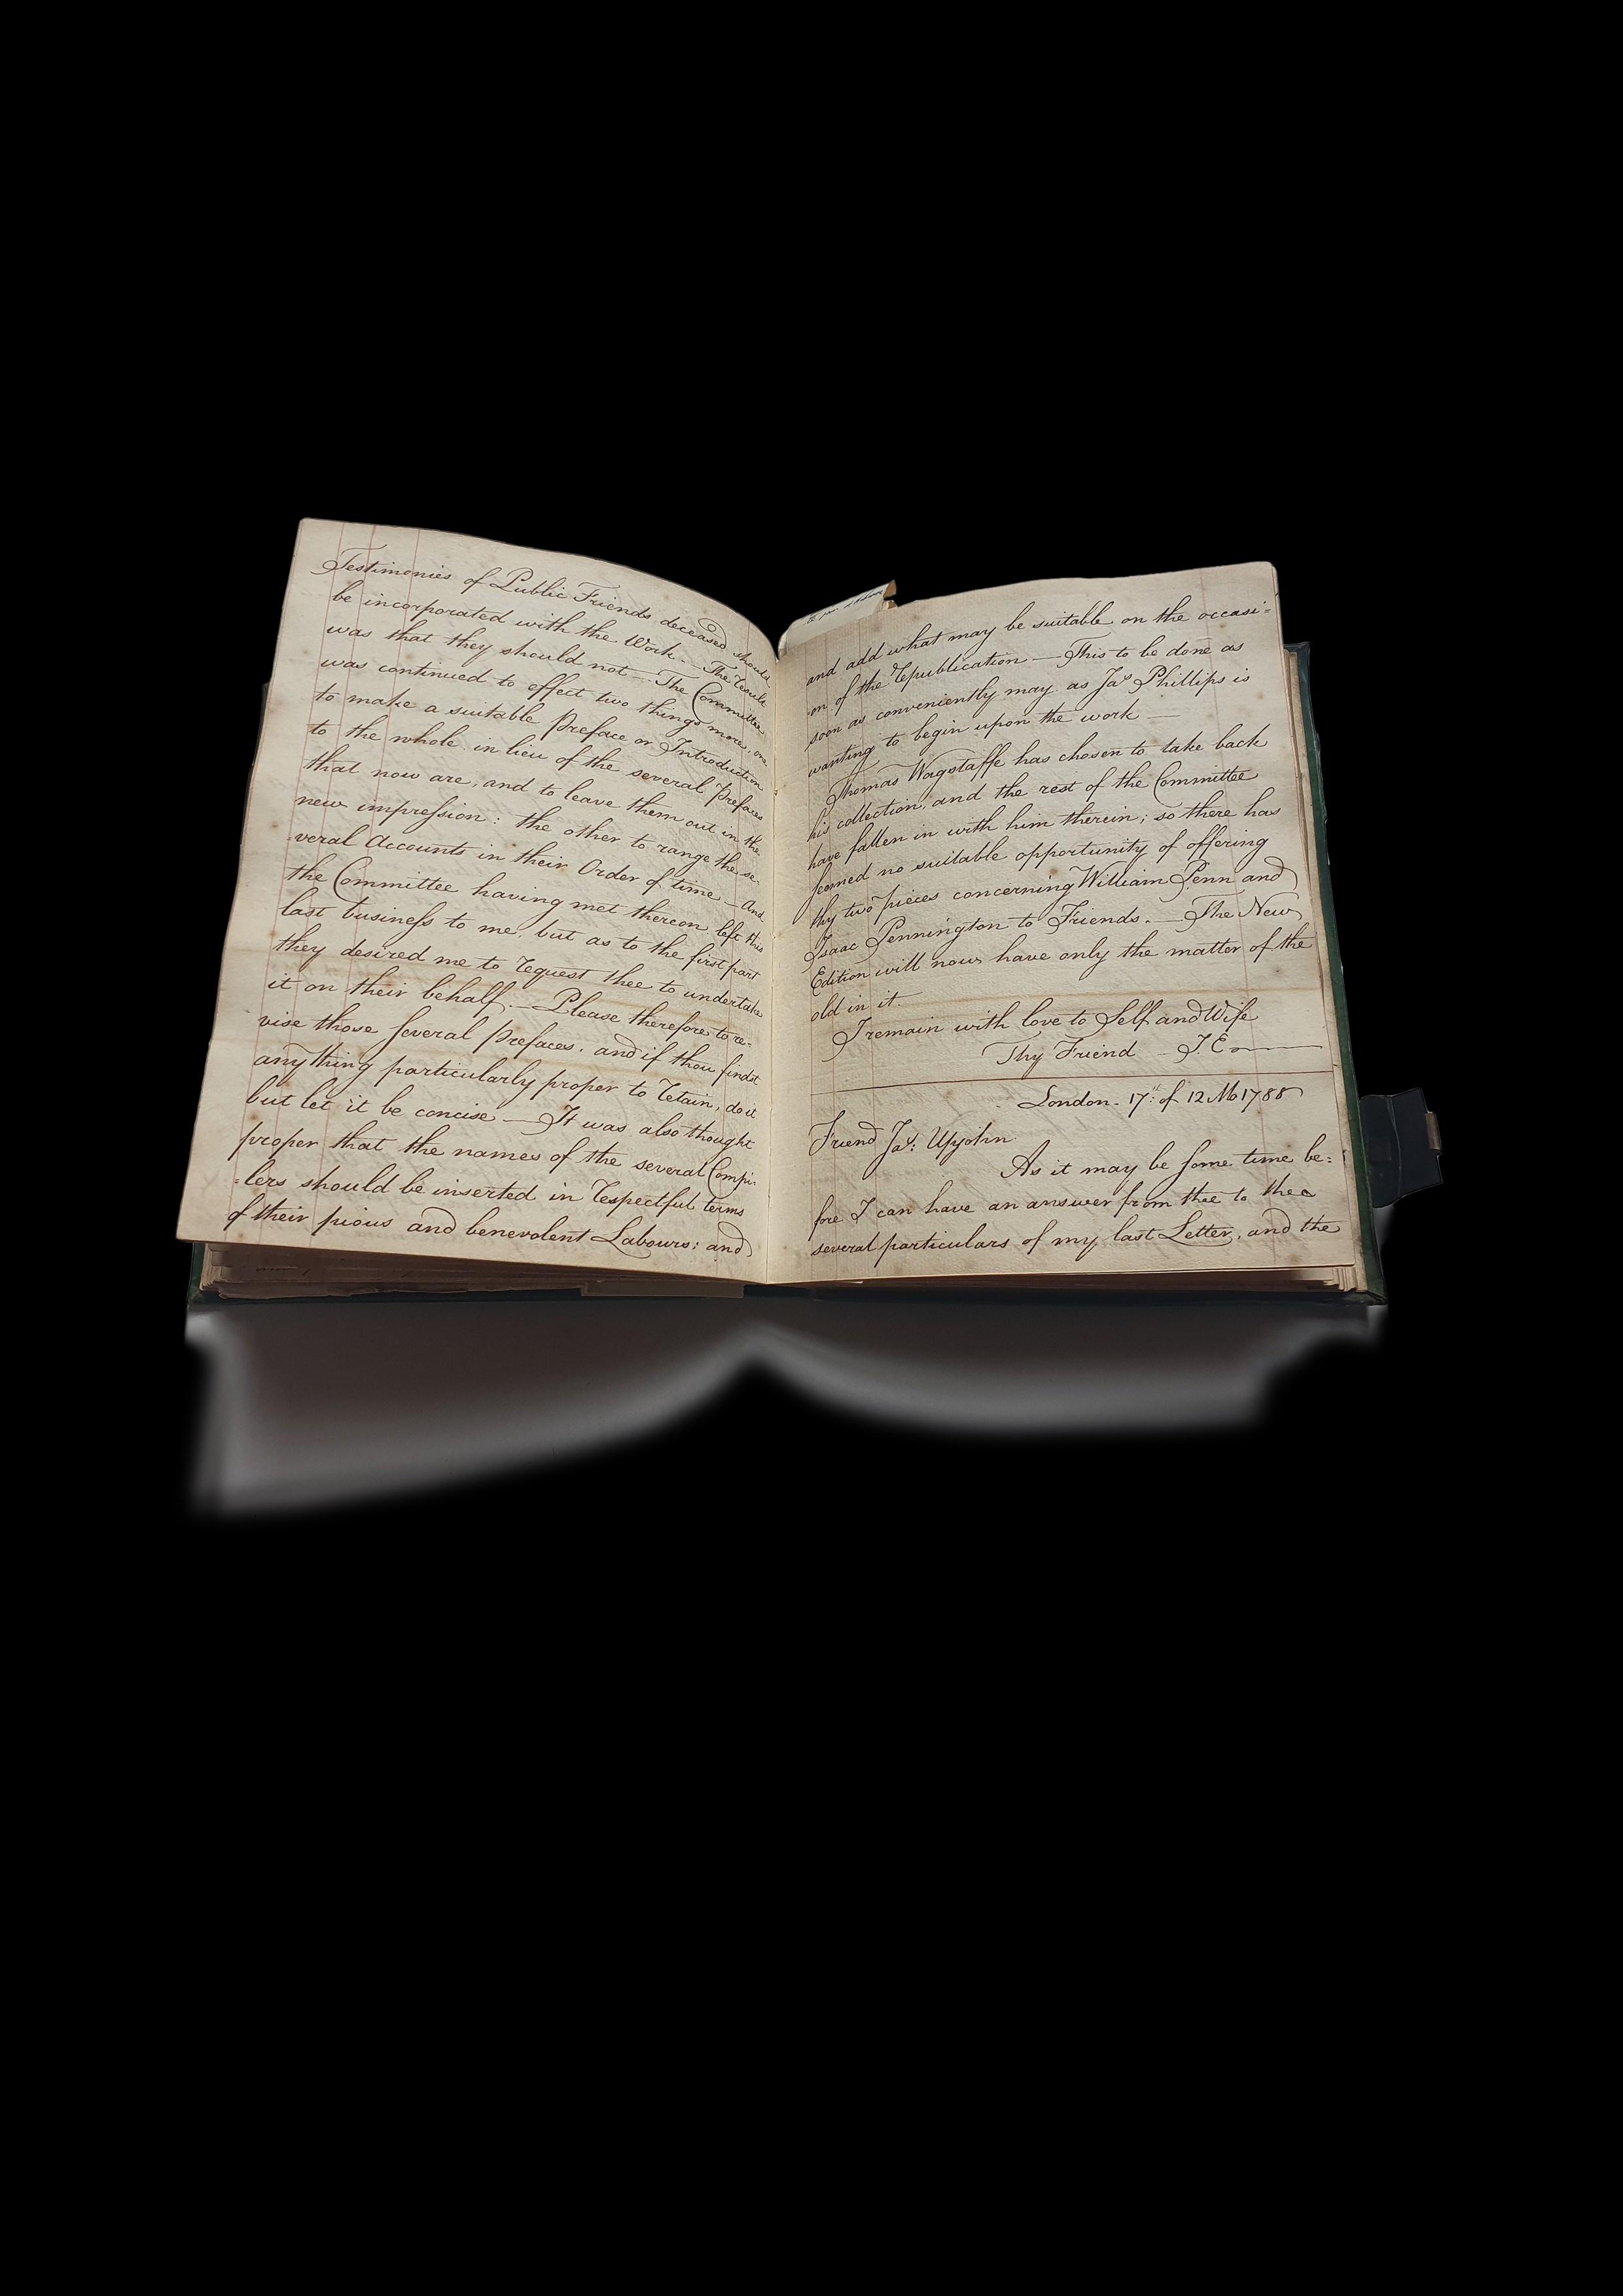 Testimonies of Public Friends deceased should
be incorporated with the Work. — The result
was that they should not — The Committee
was continued to effect two things more, one
to make a suitable Preface or Introduction
to the whole in lieu of the several Prefaces
that now are, and to leave them out in the
new impression: the other to range the se-
veral Accounts in their Order of time — And
the Committee having met thereon left this
last business to me, but as to the first part
they desired me to request thee to undertake
it on their behalf. — Please therefore to re-
vise those several Prefaces, and if thou findst
any thing particularly proper to retain, do it
but let it be concise — It was also thought
proper that the names of the several Compi-
-lers should be inserted in respectful terms
of their pious and benevolent Labours: and
and add what may be suitable on the occasi=
on of the republication — This to be done as
soon as conveniently may as Jas Phillips is
wanting to begin upon the work —
Thomas Wagstaffe has chosen to take back
his collection, and the rest of the Committee
have fallen in with him therein; so there has
seemed no suitable opportunity of offering
thy two pieces concerning William Penn and
Isaac Pennington to Friends. — The New
Edition will now have only the matter of the
old in it.
I remain with love to Self and Wife
Thy Friend — J. E
London. 17th of 12 Mo 1788
Friend Jas: Upjohn
As it may be some time be=
fore I can have an answer from thee to the
several particulars of my last Letter, and the